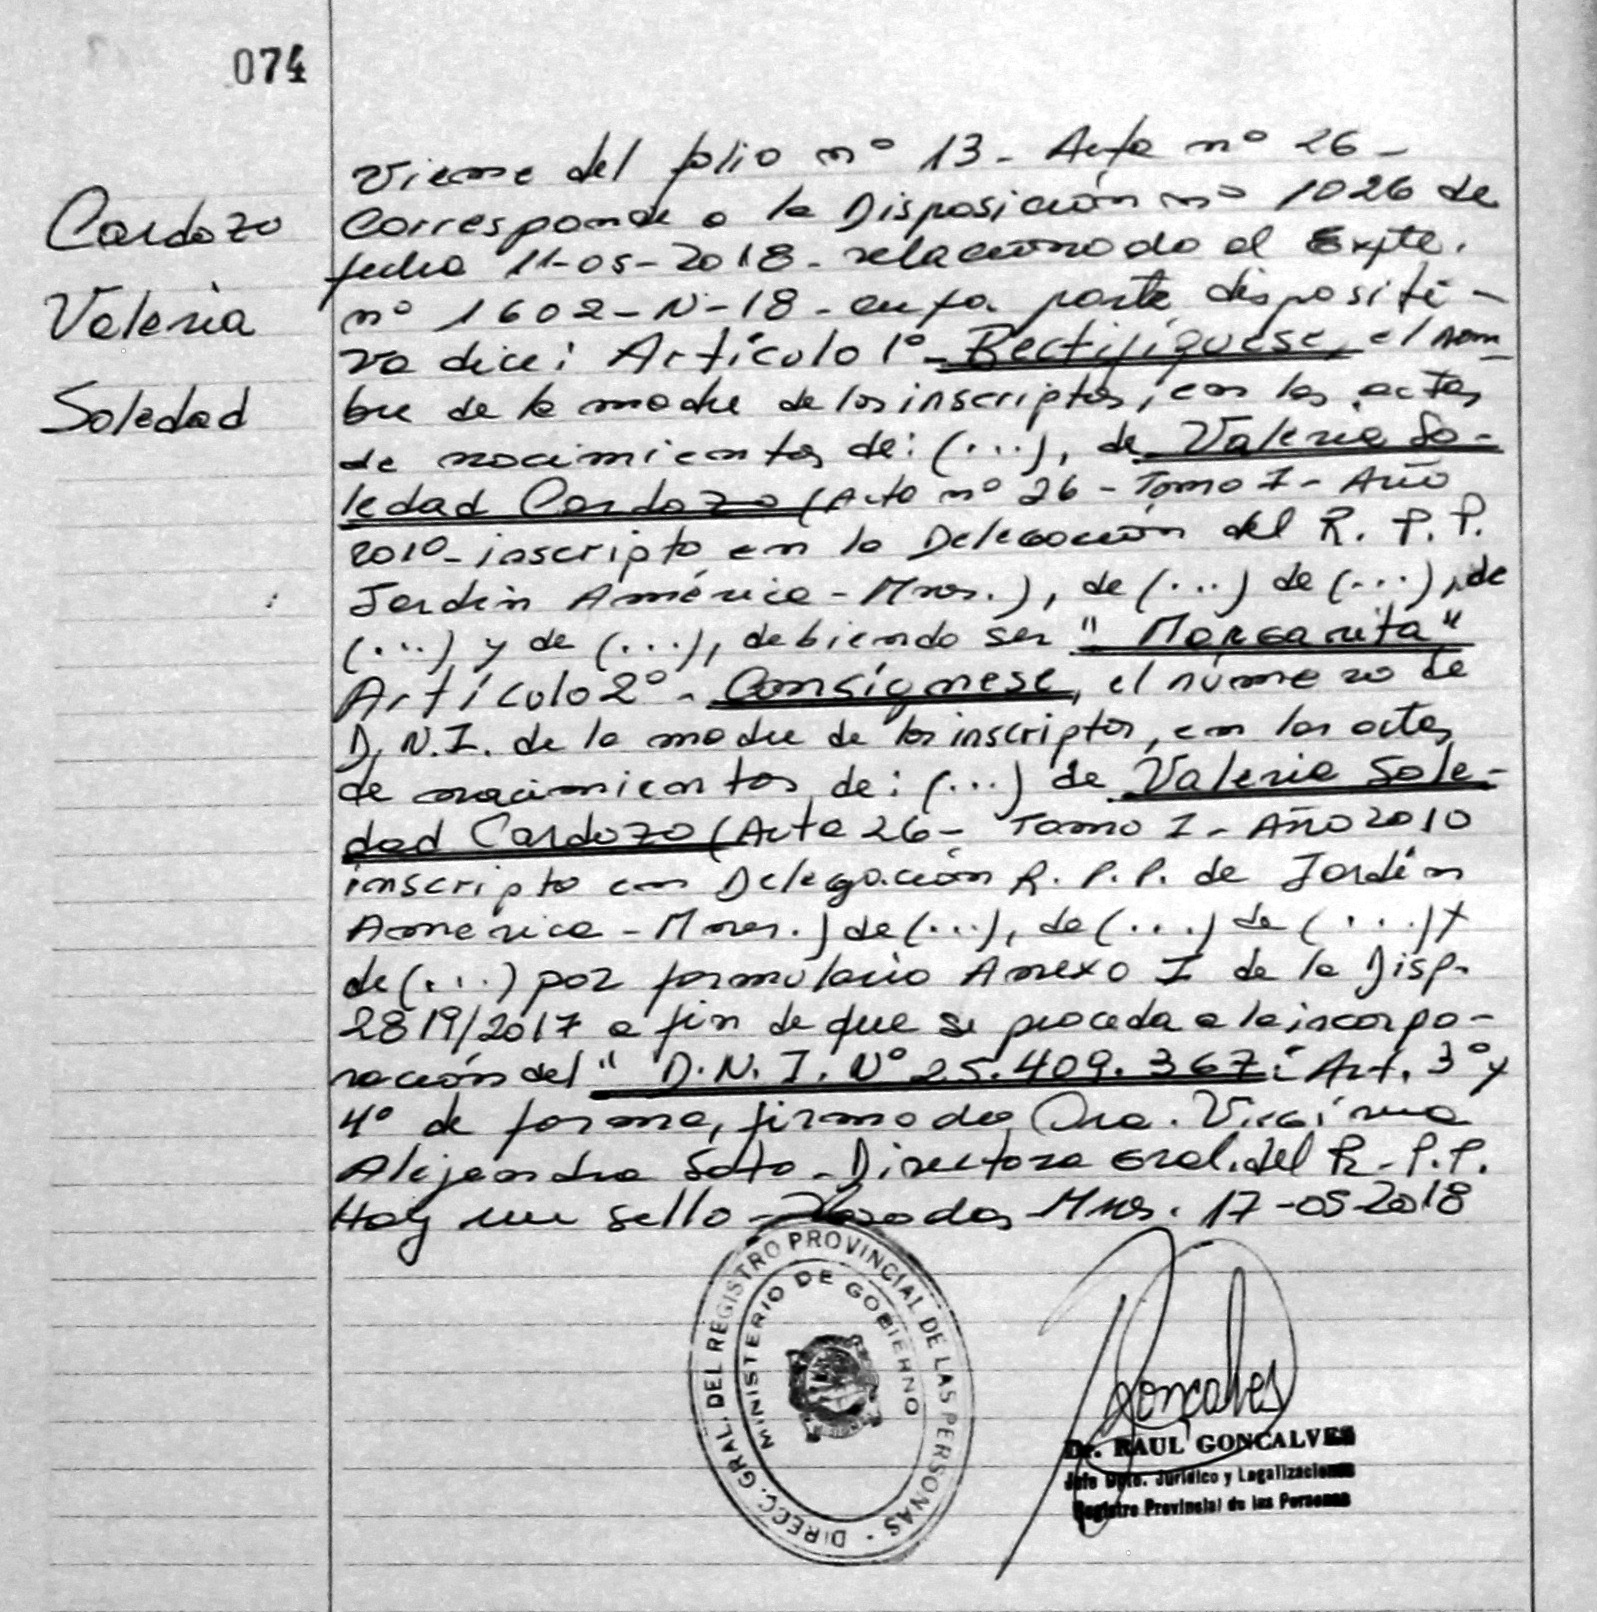 074
Cardozo
Valeria
Soledad
Viene del folio nº 13 - Acta nº 26 -
Corresponde a la Disposición nº 1026 de
fecha 11-05-2018 - relacionado al Expte.
nº 1602-N-18 - cuya parte dispositi-
va dice: Artículo 1º - Rectifíquese, el nom-
bre de la madre de los inscriptos, en las actas
de nacimientos de: (...), de Valeria So-
ledad Cardozo (Acta nº 26 - Tomo I - Año
2010 - inscripta en la Delegación del R. P. P.
Jardín América - Mnes.), de (...) de (...), de
(...) y de (...), debiendo ser "Margarita"
Artículo 2º - Consígnese, el número de
D.N.I. de la madre de los inscriptos, en las actas
de nacimientos de: (...) de Valeria Sole-
dad Cardozo (Acta 26 - Tomo I - Año 2010
inscripta en Delegación R. P. P. de Jardín
América - Mnes.) de (...), de (...) de (...) y
de (...) por formulario Anexo I de la Disp.
2819/2017 a fin de que se proceda a la incorpo-
ración del "D.N.I. Nº 25.409.367: Art. 3º y
4º de forma, firmado Dra. Virginia
Alejandra Soto - Directora Gral. del R. P. P.
Hay un sello - Posadas Mnes. 17-05-2018
DIRECC. GRAL. DEL REGISTRO PROVINCIAL DE LAS PERSONAS
MINISTERIO DE GOBIERNO
Goncalves
Dr. RAUL GONCALVES
Jefe Dpto. Jurídico y Legalizaciones
Registro Provincial de las Personas